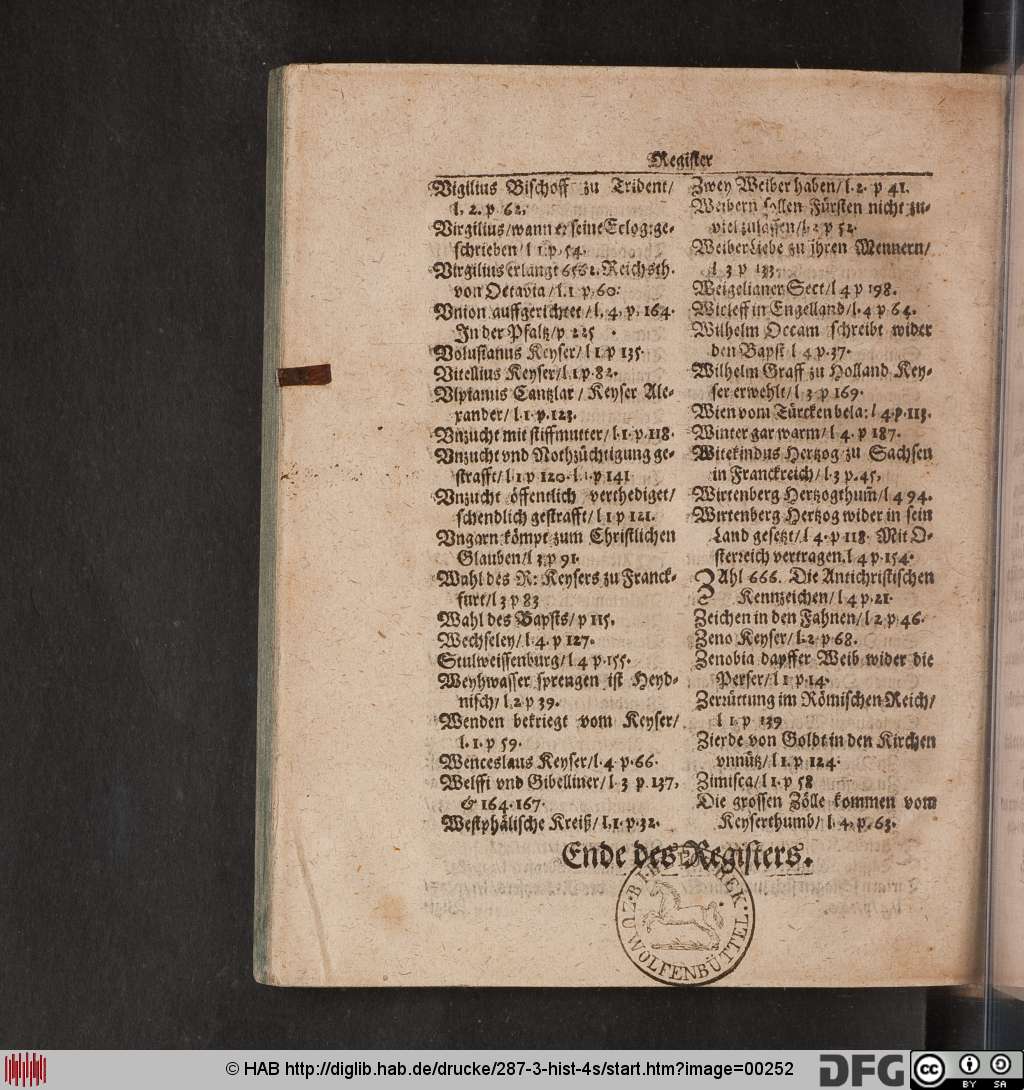 Register
Vigilius Bischoff zu Trident/
l. 2. p 62.
Virgilius/wann er seine Eclog: ge-
schrieben/l 1. p. 54.
Virgilius erlangt Reichsth.
von Octavia/l. 1 p. 60.
Vnion auffgerichtet/l. 4. p. 164.
In der Pfaltz/p 225
Volusianus Keyser/l 1 p 135.
Vitellius Keyser/l. 1 p. 82.
Vlpianus Cantzlar/Keyser Ale-
xander/l. 1. p. 123.
Vnzucht mit stiffmutter/l. 1. p. 118.
Vnzucht vnd Nothzüchtigung ge-
strafft/l 1 p 120. p 141
Vnzucht öffentlich verthediget/
schendlich gestrafft/l 1 p 121.
Vngarn kömpt zum Christlichen
Glauben/l 3 p 91.
Wahl des R: Keysers zu Franck-
furt/l 3 p 83
Wahl des Bapsts/p 115.
Wechseley/l. 4. p 127.
Stulweissenburg/l 4 p. 155.
Weyhwasser sprengen ist Heyd-
nisch/l. 2 p 39.
Wenden bekriegt vom Keyser/
l. 1. p 59.
Wenceslaus Keyser/l. 4 p. 66.
Welffi vnd Gibelliner/l. 3 p. 137,
& 164. 167.
Westphälische Kreiß/l. 1. p. 32.
Zwey Weiber haben/l. 2. p 41.
Weibern sollen Fürsten nicht zu-
viel zulassen/l. 2 p 52.
Weiber Liebe zu ihren Mennern/
l 3 p 133.
Weigelianer Sect/l 4 p 198.
Wicleff in Engelland/l. 4 p 64.
Wilhelm Occam schreibt wider
den Bapst l 4 p. 37.
Wilhelm Graff zu Holland Key-
ser erwehlt/l 3 p 169.
Wien vom Türcken bela: l 4. p. 113.
Winter gar warm/l 4. p 187.
Witekindus Hertzog zu Sachsen
in Franckreich/l. 3 p. 45.
Wirtenberg Hertzogthum̃/l 4 94.
Wirtenberg Hertzog wider in sein
Land gesetzt/l 4. p 118. Mit O-
sterreich vertragen. l 4 p. 154.
ZAhl 666. Die Antichristischen
Kennzeichen/l 4 p. 21.
Zeichen in den Fahnen/l 2 p 46.
Zeno Keyser/l. 2 p 68.
Zenobia dapffer Weib wider die
Perser/l 1 p. 14.
Zerrüttung im Römischen Reich/
l 1. p 139
Zierde von Goldt in den Kirchen
vnnütz/l 1. p 124.
Zimisca/l 1. p 58
Die grossen Zölle kommen vom
Keyserthumb/l. 4. p. 63.
Ende des Registers.
BIBLIOTHEK
ZU WOLFENBÜTTEL
© HAB http://diglib.hab.de/drucke/287-3-hist-4s/start.htm?image=00252
DFG
cc
BY SA